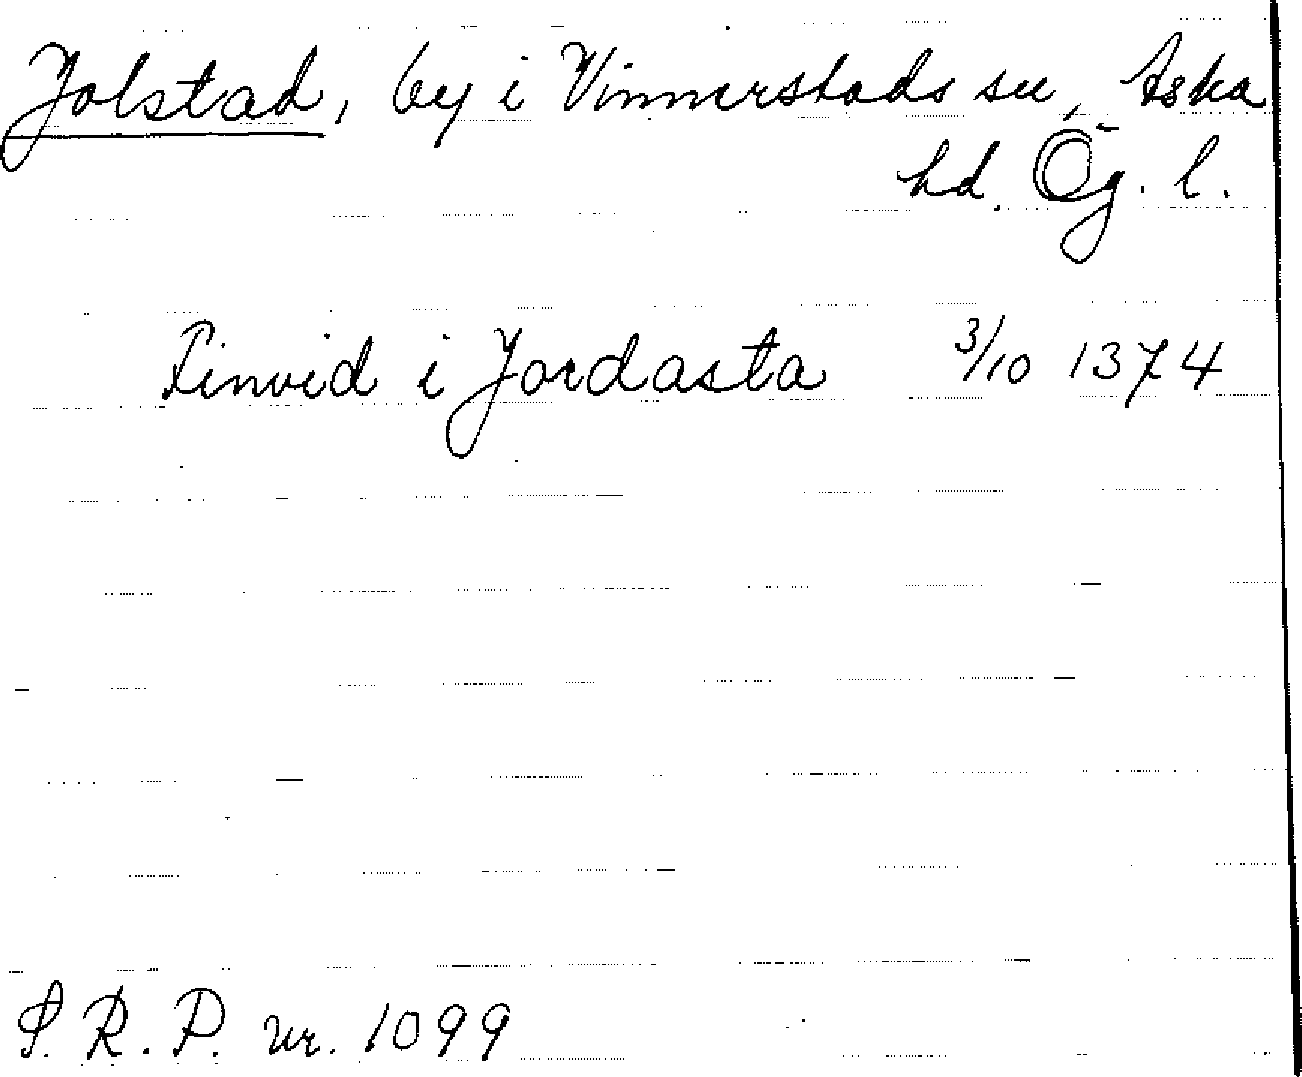 Jolstad, by i Vinnerstads sn, Aska
hd. Ög. l.
Linvid i Jordasta 3/10 1374
S. R. P. nr. 1099